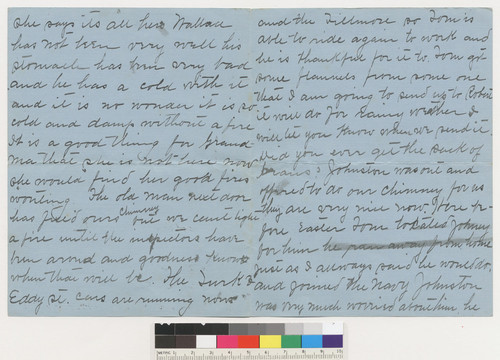 she says its all hers Wallace
has not been very well his
stomach has been very bad
and he has a cold with it
and it is no wonder it is so
cold and damp without a fire
It is a good thing for Grand
ma that she is not here now
she would find her good fires
wanting The old man next door
has fixed ours chimney but we cant light
a fire until the inspectors have
been around and goodness knows
when that will be. The Turk &
Eddy St. cars are running now
and the Fillmore so Tom is
able to ride again to work and
he is thankful for it. Tom got
some flannels from some one
that I am going to send up to Robert
it will do for rainy weather I
will let you know when we send it
Did you ever get the sack of
Johnston was out and
offered to do our chimney for us
they are very nice now. Here
fore Easter Tom Johney
for him he ran away from home
just as I always said he would do
and joined the Navy Johnston
was very much worried about him he